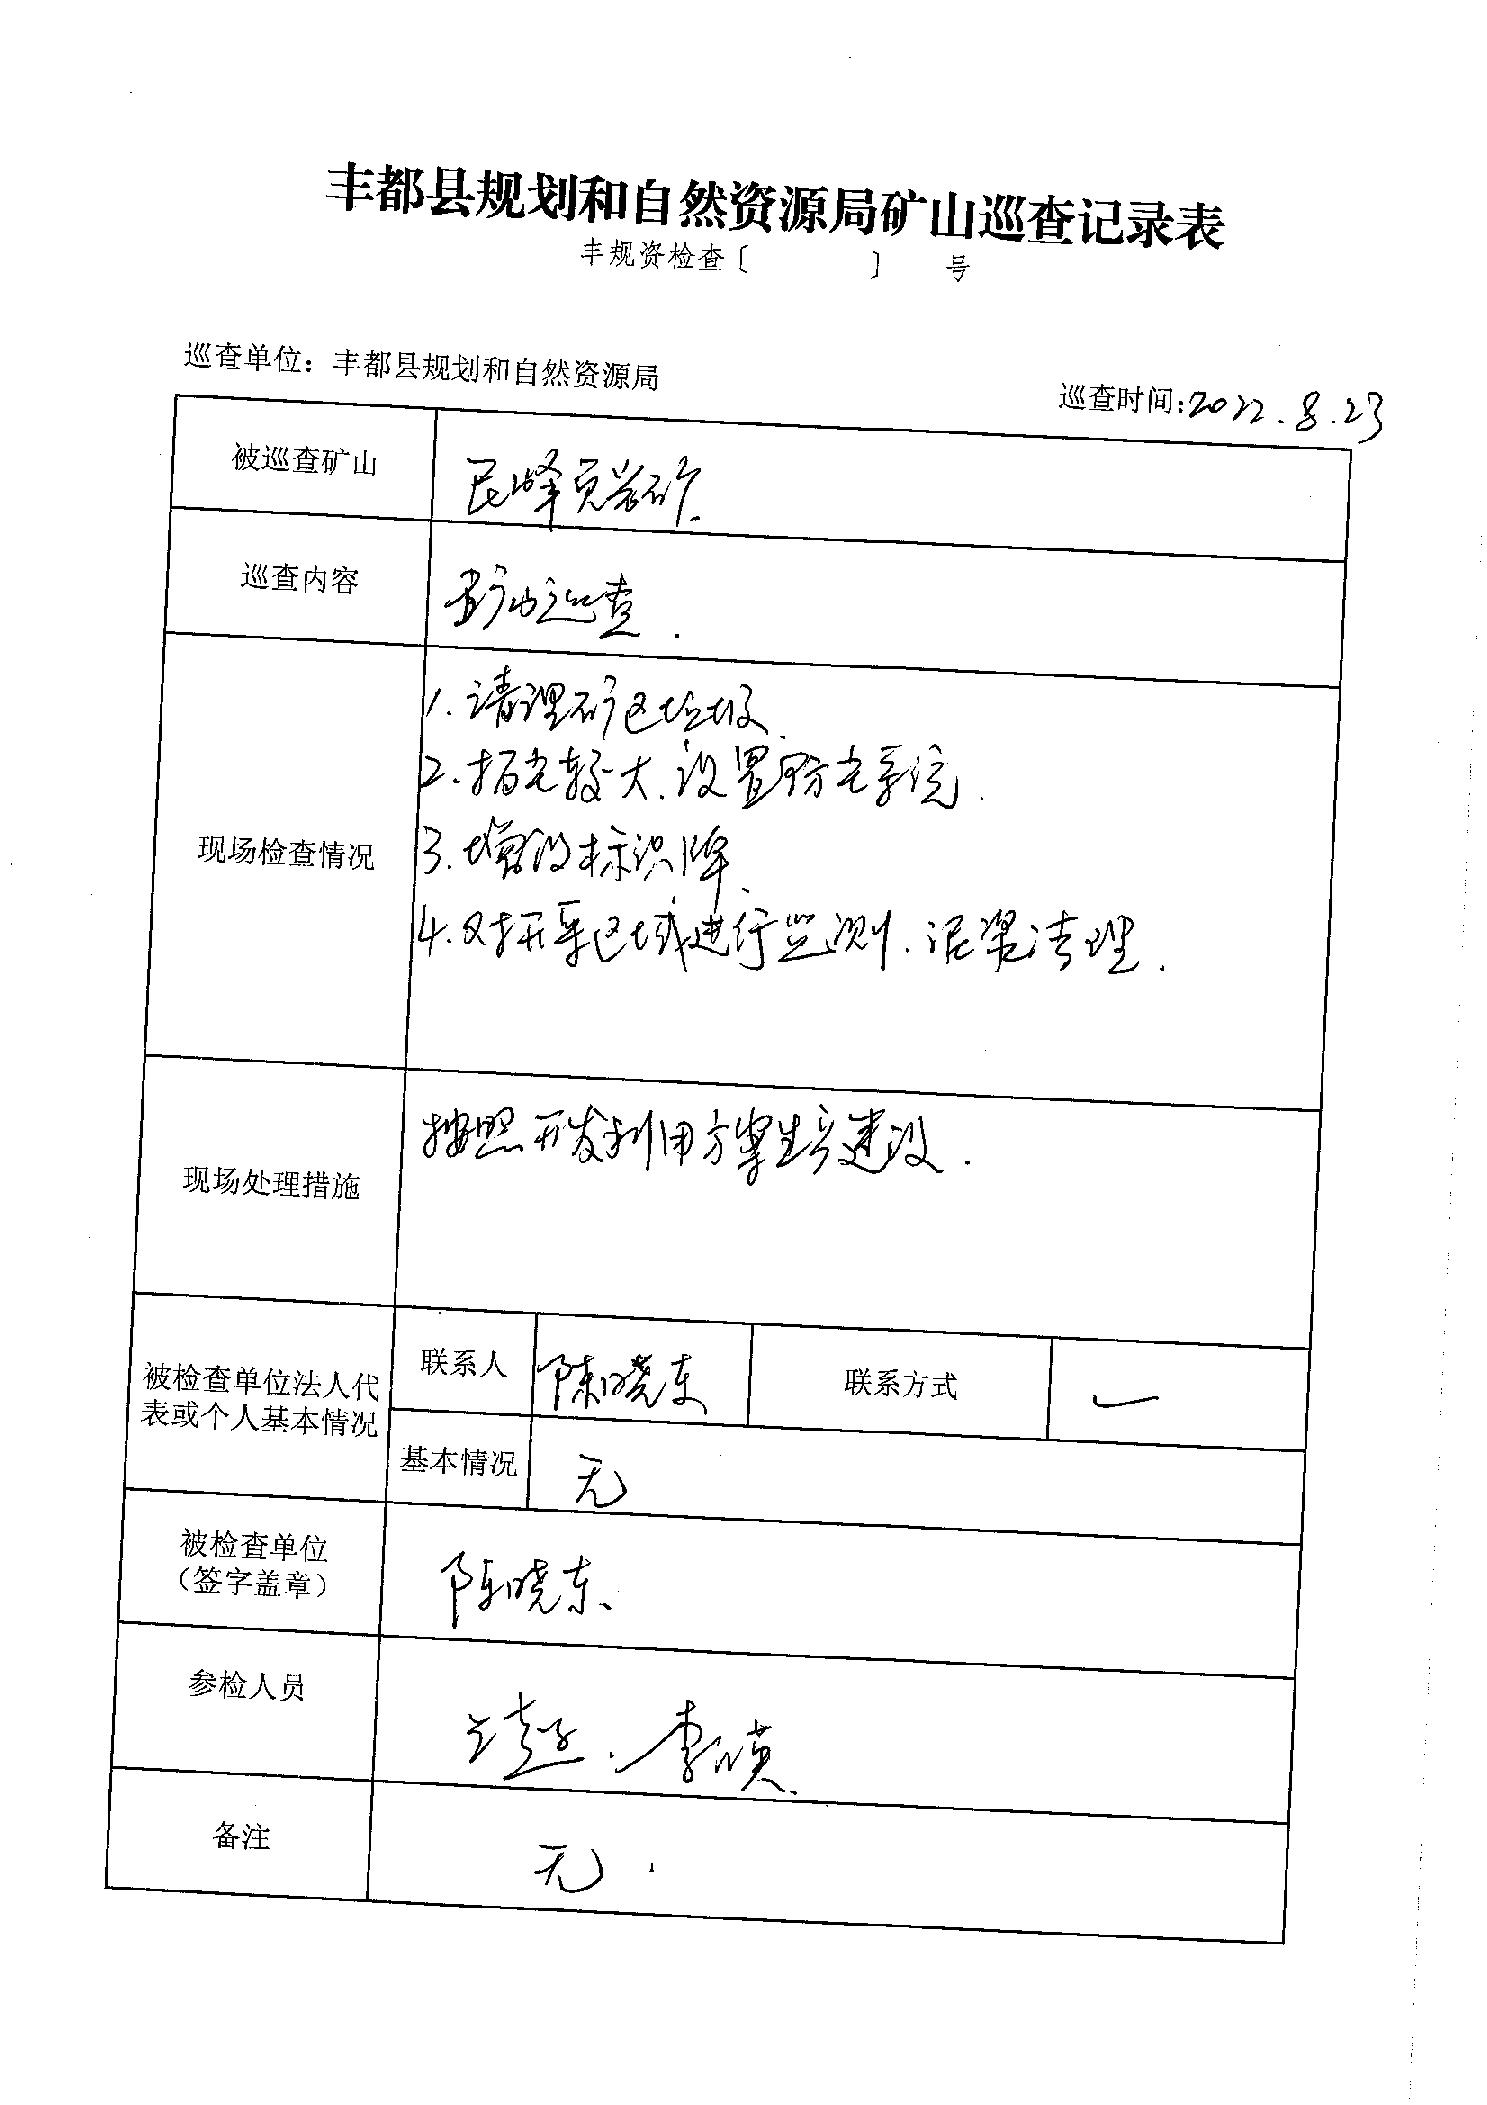 丰都县规划和自然资源局矿山巡查记录表
丰规资检查〔 〕 号
巡查单位：丰都县规划和自然资源局
巡查时间：2022.8.23
被巡查矿山 民峰页岩矿.
巡查内容 巡查.
现场检查情况
1.请理矿区垃圾.
2. 较大.设置防尘系统.
3.增设标识牌.
4.对开采区域进行监测.泥浆清理.
现场处理措施 按照开发利用方案生产建设.
被检查单位法人代
表或个人基本情况
联系人 陈晓东 联系方式 一
基本情况 无
被检查单位
（签字盖章） 陈晓东.
参检人员 李
备注 无.